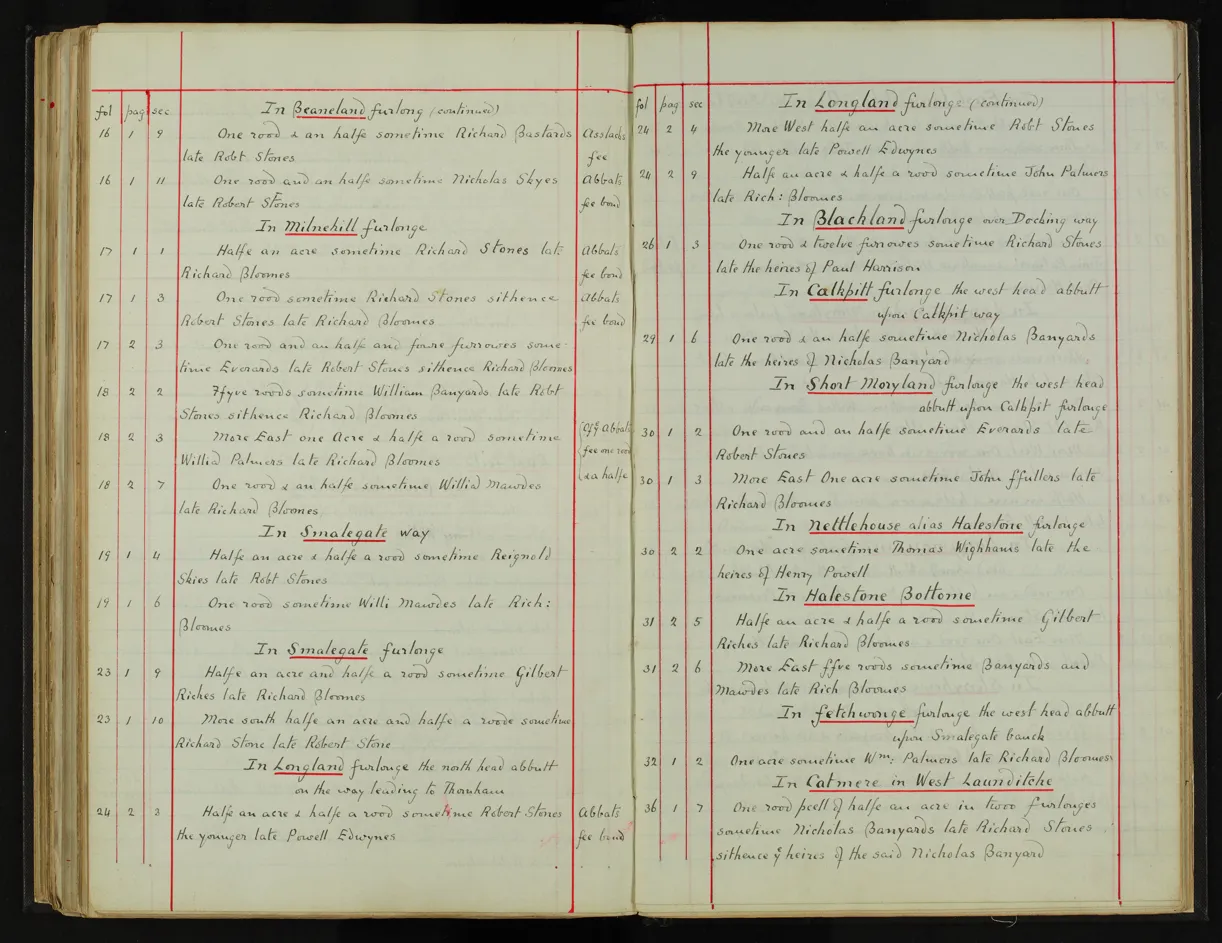 fol pag sec In Beaneland furlong (continued)
16 1 9 One rood & an halfe sometime Richard Bastards Asslacks
late Robt Stones fee
16 1 11 One rood and an halfe sometime Nicholas Skyes Abbats
late Robert Stones fee bond
In Milnehill furlonge
17 1 1 Halfe an acre sometime Richard Stones late Abbats
Richard Bloomes fee bond
17 1 3 One rood sometime Richard Stones sithence Abbats
Robert Stones late Richard Bloomes fee bond
17 2 3 One rood and an halfe and fowre furrowes some-
time Everards late Robert Stones sithence Richard Bloomes
18 2 2 Ffyve roods sometime William Banyards late Robt
Stones sithence Richard Bloomes
18 2 3 More East one Acre & halfe a rood sometime Of ye Abbats
Willia Palmers late Richard Bloomes fee one rood
18 2 7 One rood & an halfe sometime Willia Mawdes & a halfe
late Richard Bloomes
In Smalegate way
19 1 4 Halfe an acre & halfe a rood sometime Reignold
Skies late Robt Stones
19 1 6 One rood sometime Willi Mawdes late Rich:
Bloomes
In Smalegate furlonge
23 1 9 Halfe an acre and halfe a rood sometime Gilbert
Riches late Richard Bloomes
23 1 10 More south halfe an acre and halfe a roode sometime
Richard Stone late Robert Stone
In Longland furlonge the north head abbutt
on the way leading to Thornham
24 2 3 Halfe an acre & halfe a rood sometime Robert Stones Abbats
the younger late Powell Edwynes fee bond
fol pag sec In Longland furlonge (continued)
24 2 4 More West halfe an acre sometime Robt Stones
the younger late Powell Edwynes
24 2 9 Halfe an acre & halfe a rood sometime John Palmers
late Rich: Bloomes
In Blachland furlonge over Docking way
26 1 3 One rood & twelve furrowes sometime Richard Stones
late the heires of Paul Harrison
In Calkpitt furlonge the west head abbutt
upon Calkpit way
29 1 6 One rood & an halfe sometime Nicholas Banyards
late the heires of Nicholas Banyard
In Short Moryland furlonge the west head
abbutt upon Calkpit furlonge
30 1 2 One rood and an halfe sometime Everards late
Robert Stones
30 1 3 More East One acre sometime John ffullers late
Richard Bloomes
In Nettlehouse alias Halestone furlonge
30 2 2 One acre sometime Thomas Wighhams late the
heires of Henry Powell
In Halestone Bottome
31 2 5 Halfe an acre & halfe a rood sometime Gilbert
Riches late Richard Bloomes
31 2 6 More East ffve roods sometime Banyards and
Mawdes late Rich Bloomes
In fetchwonge furlonge the west head abbutt
upon Smalegate banck
32 1 2 One acre sometime Wm: Palmers late Richard Bloomes
In Catmere in West Launditche
36 1 7 One rood pcell of halfe an acre in twoo furlonges
sometime Nicholas Banyards late Richard Stones
sithence ye heires of the said Nicholas Banyard